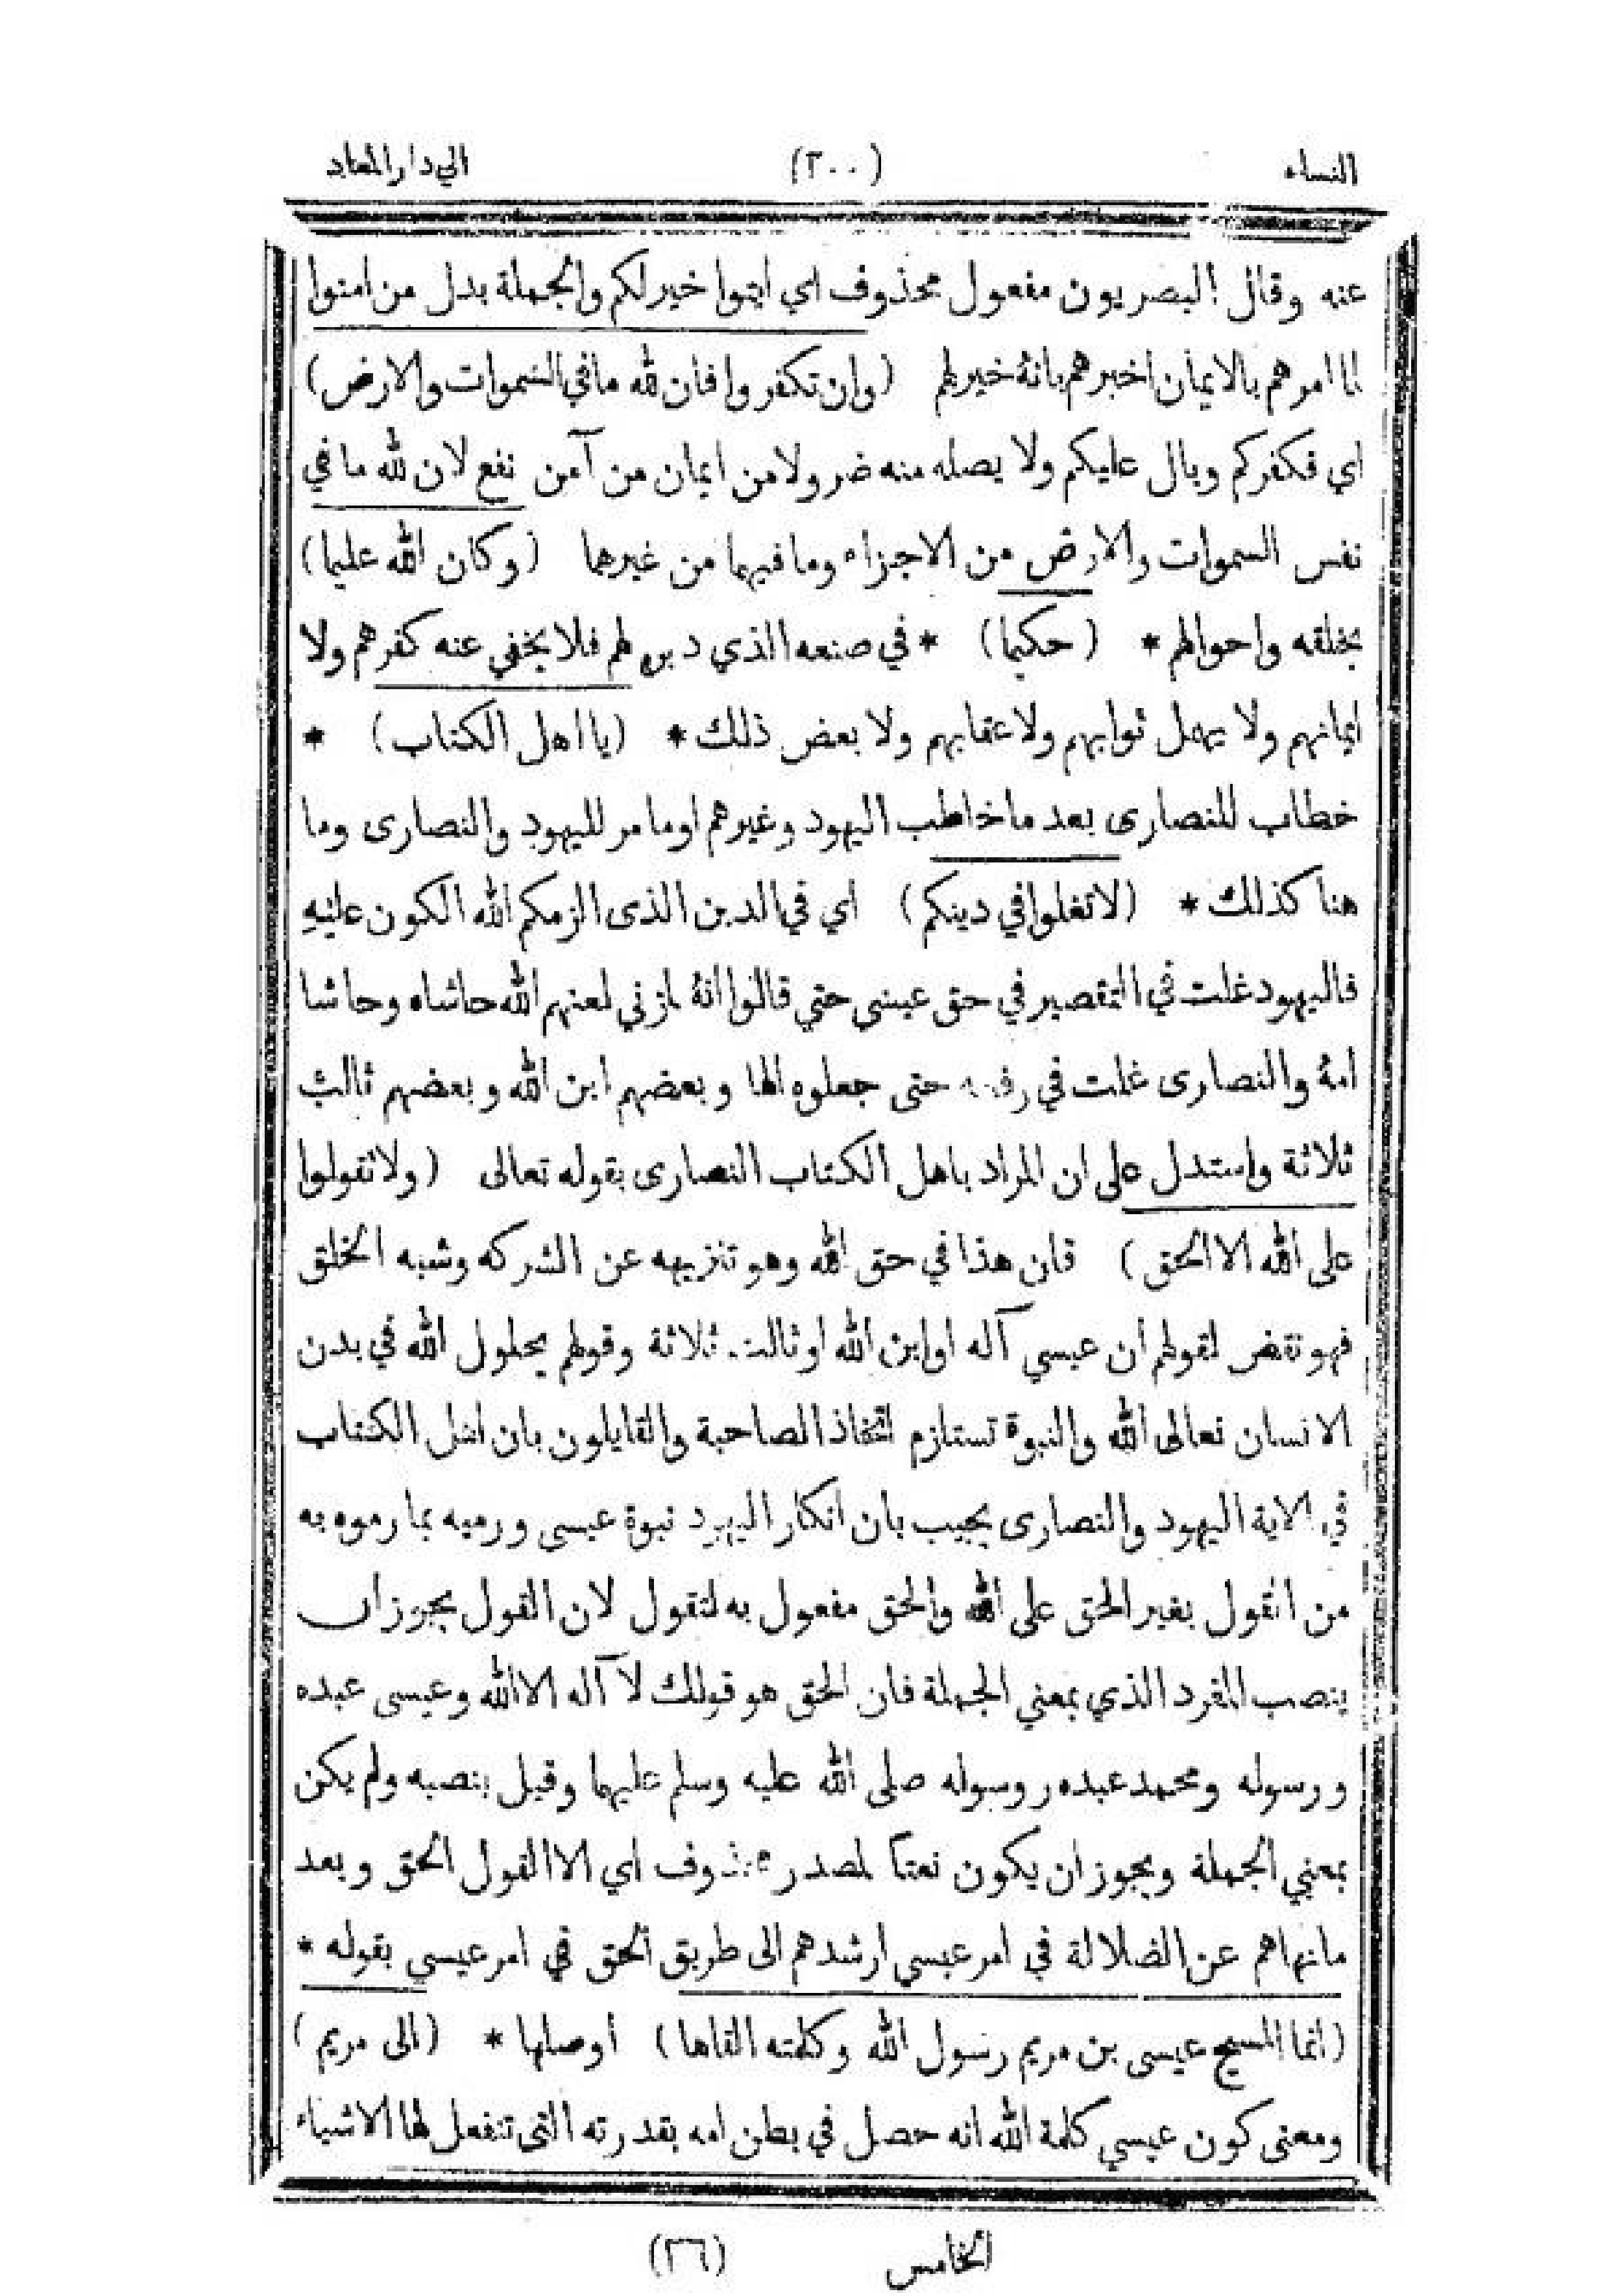 النساء (٢٠٠) الي دار المعاد
عنه وقال البصريون مفعول محذوف اي ايتوا خير لكم والجملة بدل من امنوا
لما امرهم بالايمان اخبرهم بانهٔ خير لهم (وان تكفروا فان لله ما في السموات والارض)
اي فكفركم وبال عليكم ولا يصله منه ضر ولا من ايمان من آمن نفع لان لله ما في
نفس السموات والارض من الاجزاء وما فيهما من غيرهما (وكان الله عليما)
بخلقه واحوالهم * (حكيما) * في صنعه الذي دبره لهم فلا يخفي عنه كفرهم ولا
ايمانهم ولا يهمل ثوابهم ولا عقابهم ولا بعض ذلك * (يا اهل الكتاب) *
خطاب للنصارى بعد ما خاطب اليهود وغيرهم او ما مر لليهود والنصارى وما
هنا كذلك * (لا تغلوا في دينكم) اي في الدين الذى الزمكم الله الكون عليهِ
فاليهود غلت في التقصير في حق عيسى حتي قالوا انهٔ لزني لعنهم الله حاشاه وحاشا
امهٔ والنصارى غلت في حتى جعلوه الها وبعضهم ابن الله وبعضهم ثالث
ثلاثة واستدل على ان المراد باهل الكتاب النصارى بقوله تعالى (ولا تقولوا
على الله الا الحق) فان هذا في حق الله وهو تنزيهه عن الشركه وشبه الخلق
فهو نقض لقولهم ان عيسي آله او ابن الله او ثالث ثلاثة وقولهم بحلول الله في بدن
الانسان تعالى الله والنبوة تستلزم اتخاذ الصاحبة والقايلون بان اهل الكتاب
في الاية اليهود والنصارى يجيب بان انكار اليهود نبوة عيسى ورميه بما رموه به
من القول بغير الحق على الله والحق مفعول به لتقول لان القول يجوز ان
ينصب المفرد الذي بمعني الجملة فان الحق هو قولك لا آله الا الله وعيسى عبده
ورسوله ومحمد عبده ورسوله صلى الله عليه وسلم عليهما وقيل بنصبه ولم يكن
بمعني الجملة ويجوز ان يكون نعتا لمصدر محذوف اي الا القول الحق وبعد
ما نهاهم عن الضلالة في امر عيسي ارشدهم الى طريق الحق في امر عيسي بقوله *
(انما المسيح عيسى بن مريم رسول الله وكلمته القاها) أوصلها * (الى مريم)
ومعنى كون عيسي كلمة الله انه حصل في بطن امه بقدرته التى تنفعل لها الاشياء
الخامس (٢٦)